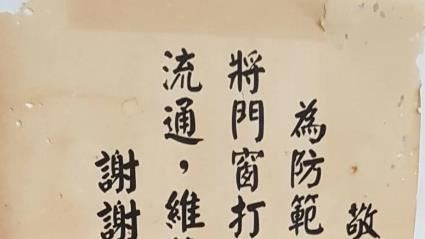 敬
為防範
將門窗打
流通，維
謝謝